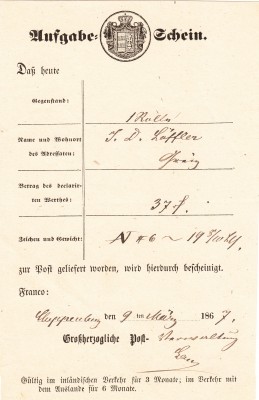 Aufgabe-Schein.
Daß heute
Gegenstand: 1 Rolle
Name und Wohnort des Adressaten: J. D. Löffler
Greiz
Betrag des declarirten Werthes: 37 f.
Zeichen und Gewicht: N # 6 19
zur Post geliefert worden, wird hierdurch bescheinigt.
Franco:
Cloppenburg den 9 ten März 1867.
Großherzogliche Post-Verwaltung
Gültig im inländischen Verkehr für 3 Monate; im Verkehr mit
dem Auslande für 6 Monate.